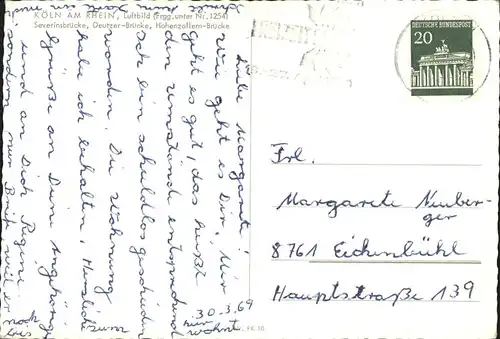 KÖLN AM RHEIN, Luftbild (Frgg. unter Nr. 1254)
Severinsbrücke, Deutzer-Brücke, Hohenzollern-Brücke
DEUTSCHE BUNDESPOST
20
Liebe Margarete!
Wie geht es Dir? Mir
geht es gut, das heißt
den Umständ entsprechend
Ich bin schuldlos geschieden
worden. Die Wohnung
habe ich behalten. Herzliche
Grüße an Dein Angehörige
und an Dich Regine
30.3.69
Frl.
Margarete Neuber-
ger
8761 Eichenbühl
Hauptstraße 139